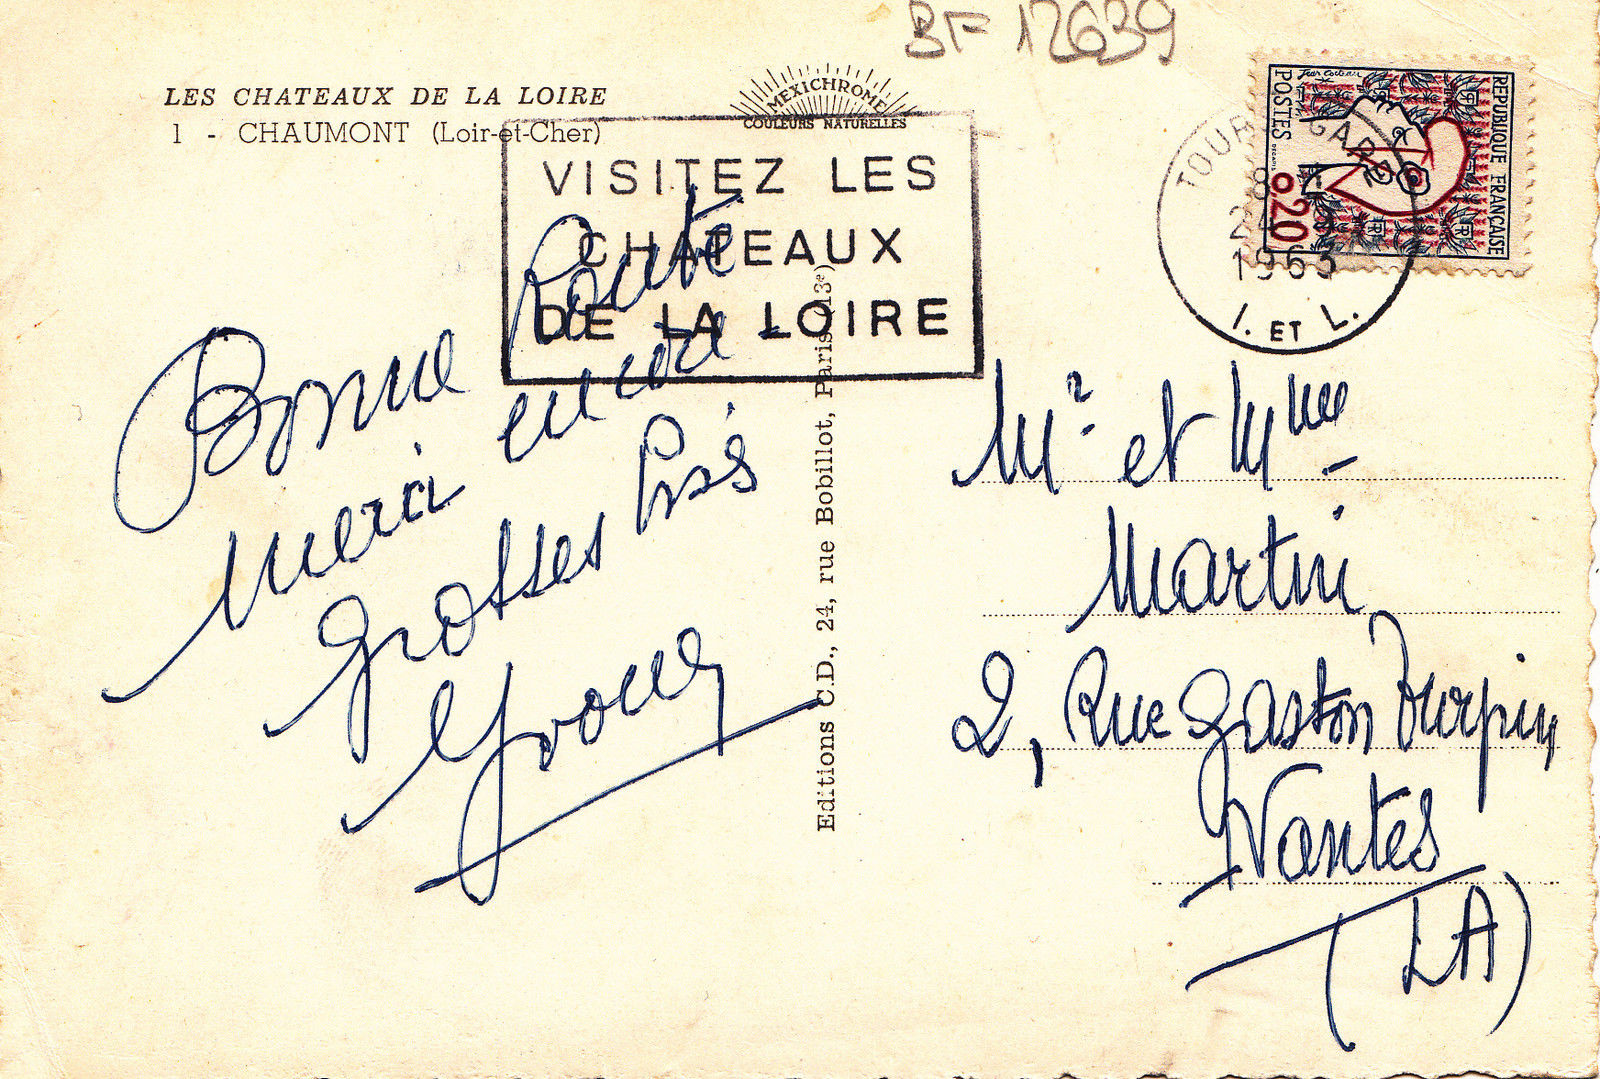 BF 12639
LES CHATEAUX DE LA LOIRE
1 - CHAUMONT (Loir-et-Cher)
MEXICHROME
COULEURS NATURELLES
VISITEZ LES
CHATEAUX
DE LA LOIRE
TOURS GARE
1963
I. ET L.
Jean Cocteau
POSTES
0,20
REPUBLIQUE FRANÇAISE
Bonne Santé
Merci encore
Grosses Bisés
Yvonne
Editions C.D., 24, rue Bobillot, Paris (13e)
Mr et Mme
Martin
2, Rue Gaston Turpin
Nantes
(LA)